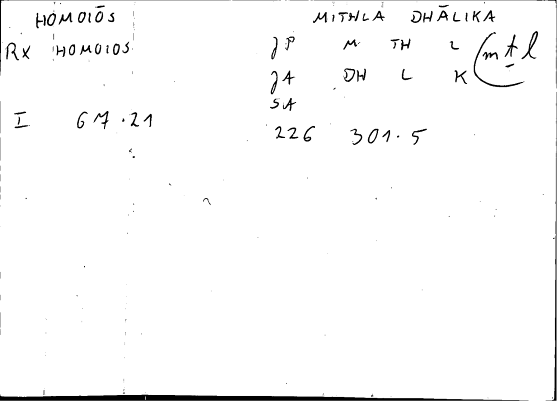 HOMOIŌS MITHLA DHĀLIKA
Rx HOMOIOS JP M TH L (mṯl
JA DH L K
SA
I 67.21 226 301.5